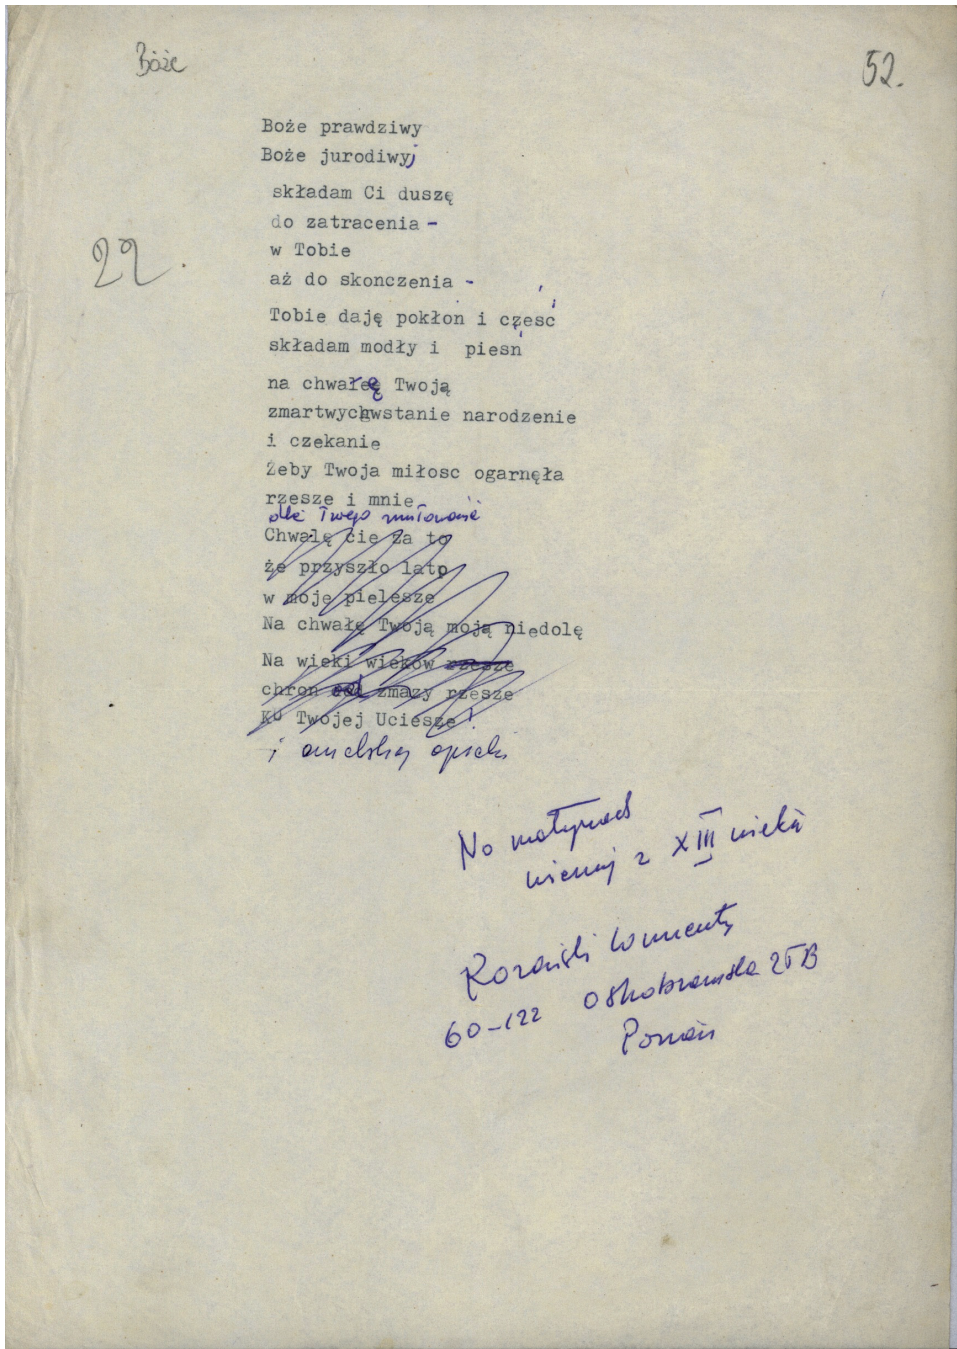 Boże
52.
Boże prawdziwy
Boże jurodiwyj
składam Ci duszę
do zatracenia -
w Tobie
aż do skonczenia -
22.
Tobie daję pokłon i część
składam modły i pieśn
na chwałę Twoją
zmartwychwstanie narodzenie
i czekanie
Żeby Twoja miłosc ogarnęła
rzesze i mnie
dla Twego
Chwalę cie za to
że przyszło lato
w moje pielesze
Na chwałę Twoją moją niedolę
Na wieki wieków rzesze
chron od zmazy rzesze
Ku Twojej Uciesze!
i opieki
Na motywach
z XIII wieku
60-122
Poznań